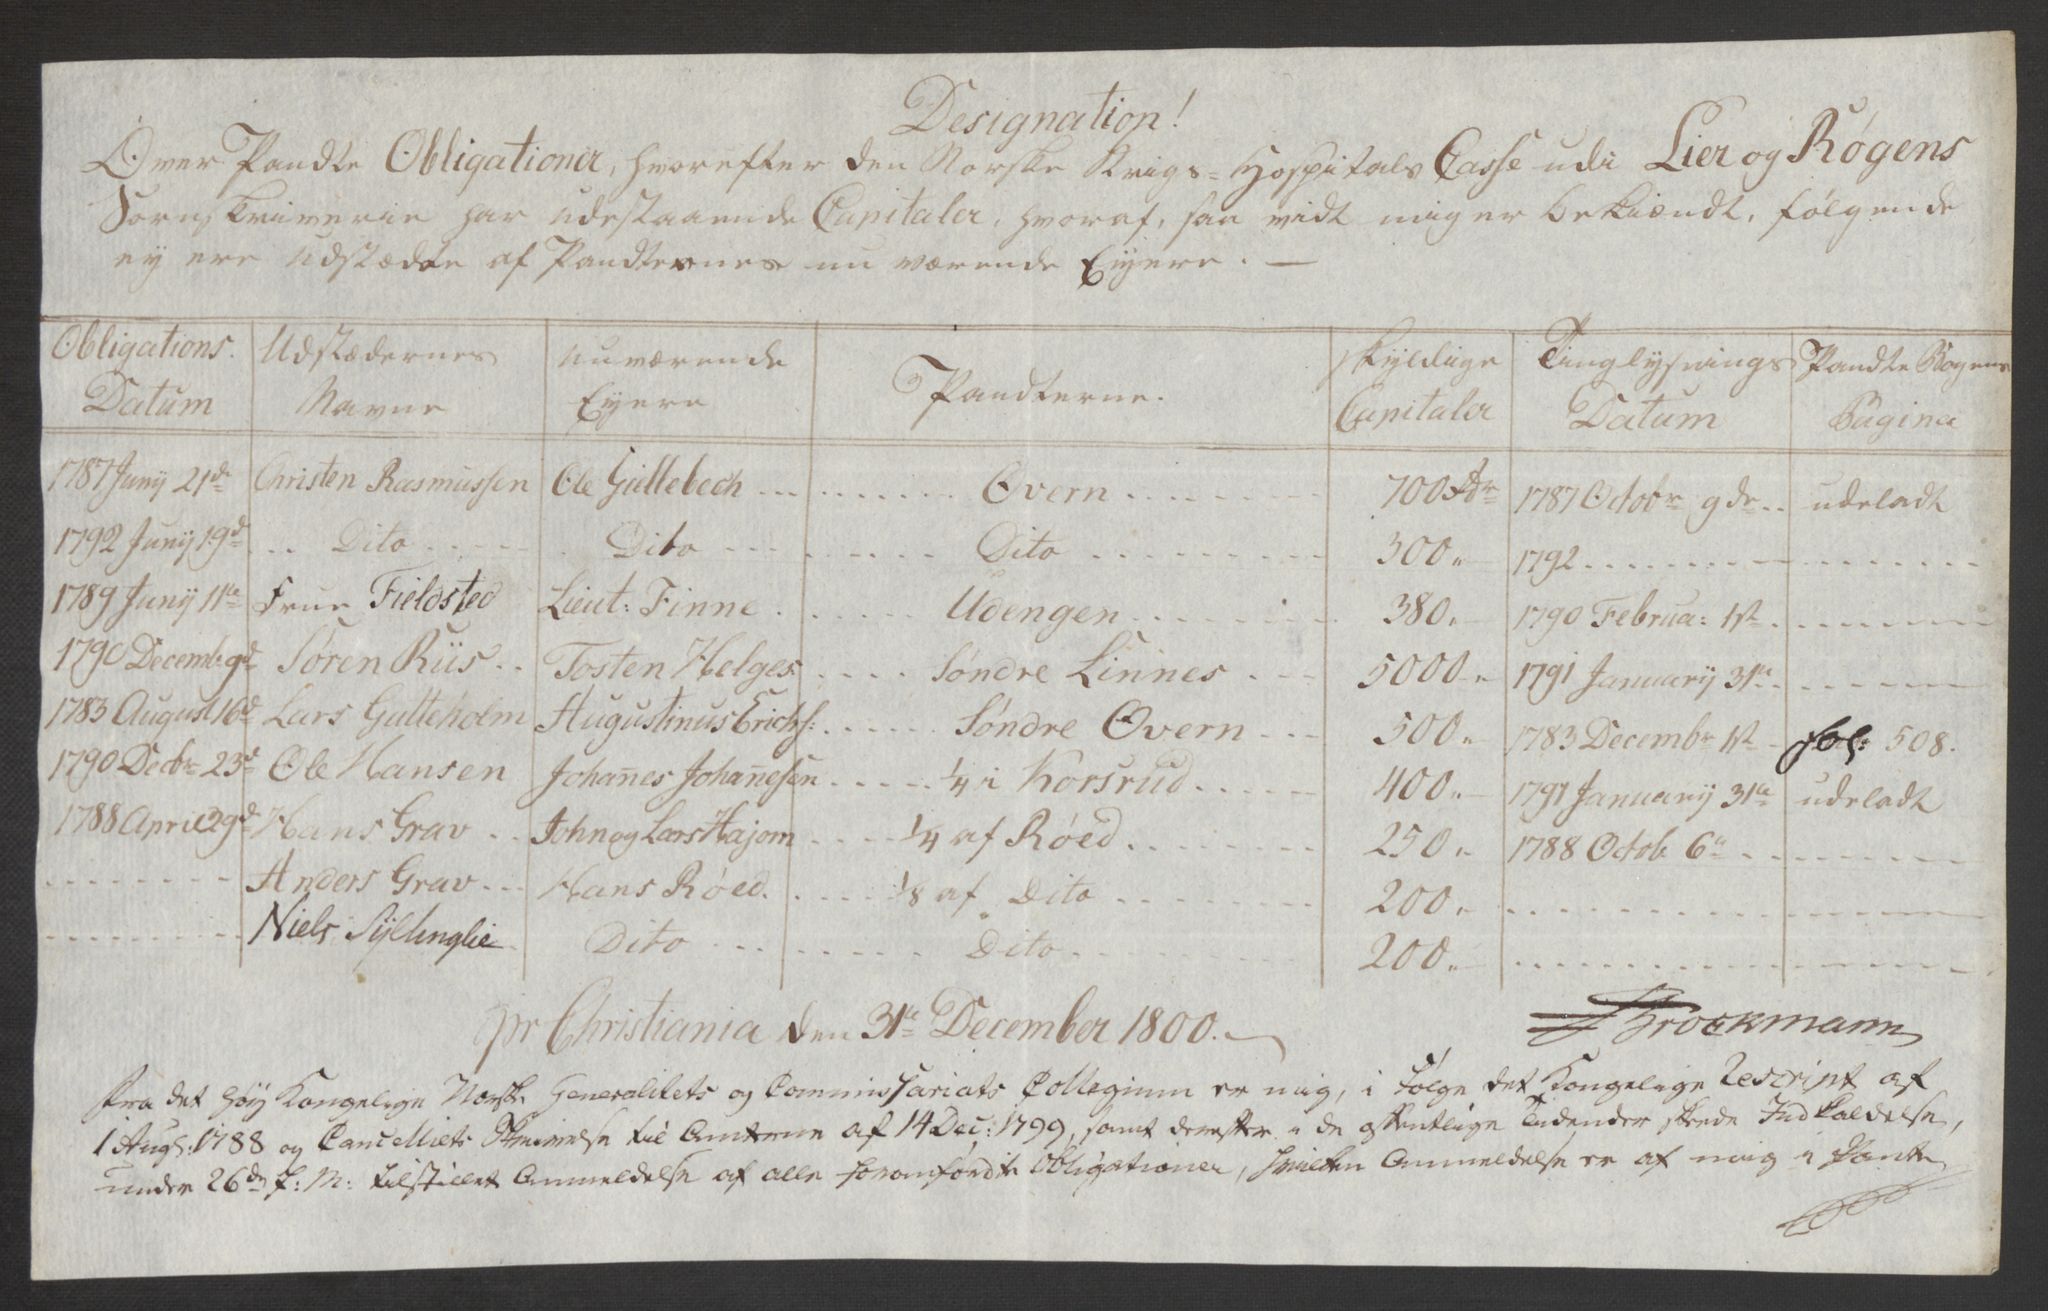 Designation!
Over Pandte Obligationer, hvorefter den Norske Krigs-Hospitals Casse udi Lier og Røgens
Sorenskriverie har udestaaende Capitaler, hvoraf, saa vidt mig er bekiændt, følgende
ey ere udstædte af Pandternes nu værende Eyere. —
Obligations. Datum | Udstædernes Navne | nuværende Eyere | Pandterne. | skyldige Capitaler | Tinglysnings Datum | Pandte Bogens Pagina
1787 Junÿ 21de | Christen Rasmussen | Ole Gullebech | Overn | 700 Rdr | 1787 Octobr 9de | udeladt
1792 Junÿ 19d | Dito | Dito | Dito | 300 | 1792
1789 Junÿ 11te | Frue Fieldsted | Lieut: Finne | Udengen | 380 | 1790 Februa: 1st
1790 Decemb 9d | Søren Riis | Tosten Helges: | Søndre Linnes | 5000 | 1791 Januarÿ 31te
1783 August 16d | Lars Gulteholm | Augustinus Erichs: | Søndre Overn | 500 | 1783 Decembr 1st | fol: 508.
1790 Decbr 23d | Ole Hansen | Johan̄es Johan̄esen | 1/4 i Korsrud | 400 | 1791 Januarÿ 31te | udeladt
1788 April 29d | Hans Grav | John og Lars Hajom | 1/4 af Røed | 250 | 1788 Octob 6te
Anders Grav | Hans Røed. | 1/8 af Dito | 200
Niels Sÿllinglie | Dito | Dito | 200
pr Christiania den 31te December 1800.
Brockmann
Fra det høÿ Kongelige Norske Generalitets og Commissariats Collegium er mig, i Følge det Kongelige Rescript af
1 Augs: 1788 og Cancelliets Skrivelse til Amterne af 14 Dec: 1799, samt derefter i de offentlige Tidender skede Indkaldelse,
under 26de f: M: tilstillet Anmeldelse af alle foranførdte Obligationer, hvilken Anmeldelse er af mig i Pante